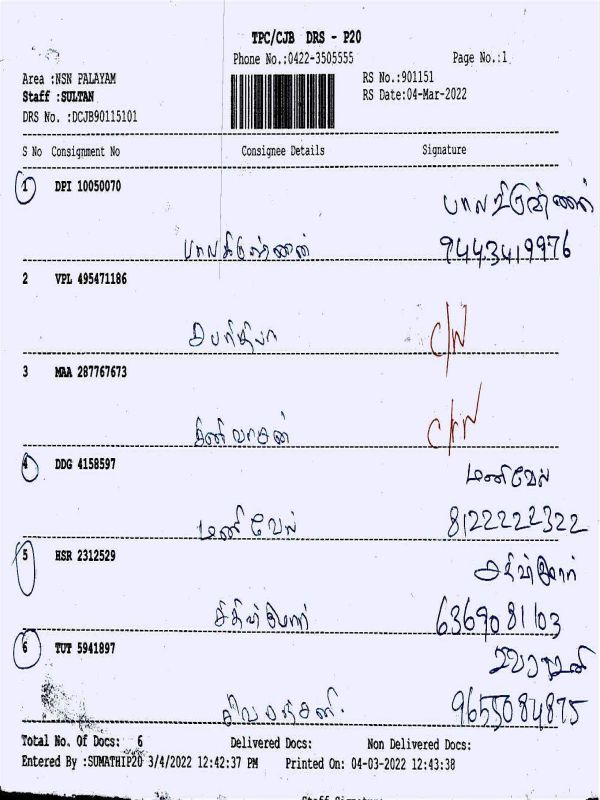 TPC/CJB DRS - P20
Phone No.:0422-3505555 Page No.:1
Area :NSN PALAYAM RS No.:901151
Staff :SULTAN RS Date:04-Mar-2022
DRS No. :DCJB90115101
S No Consignment No Consignee Details Signature
1 DPI 10050070
பாலகிருஷ்ணன் 9443419976
2 VPL 495471186
C/N
3 MAA 287767673
C/N
4 DDG 4158597 மணிவேல்
மணிவேல் 8122222322
5 HSR 2312529
6369081103
6 TUT 5941897
9655084875
Total No. Of Docs: 6 Delivered Docs: Non Delivered Docs:
Entered By :SUMATHIP20 3/4/2022 12:42:37 PM Printed On: 04-03-2022 12:43:38